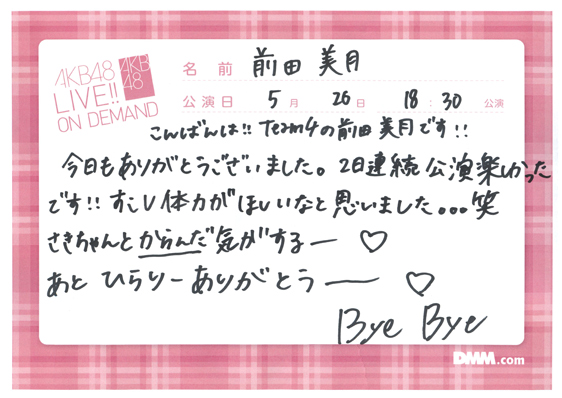 AKB48
LIVE!!
ON DEMAND
AKB
48
名前 前田 美月
公演日 5月 26日 18:30 公演
こんばんは!! Team4の前田美月です!!
今日もありがとうございました。2日連続公演楽しかった
です!! すこし体力がほしいなと思いました...笑
さきちゃんとからんだ気がするー ♡
あと ひらりーありがとうー ♡
Bye Bye
DMM.com